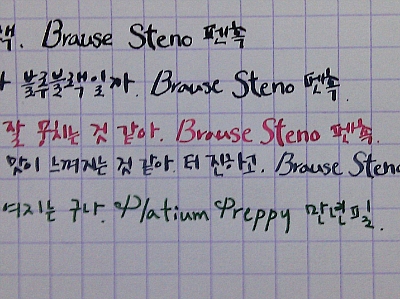 색. Brause Steno 펜촉
블루블랙일까. Brause Steno 펜촉.
잘 뭉치는 것 같아. Brause Steno 펜촉.
맛이 느껴지는 것 같아. 더 진하고. Brause Steno
여지는 구나. Platium Preppy 만년필.